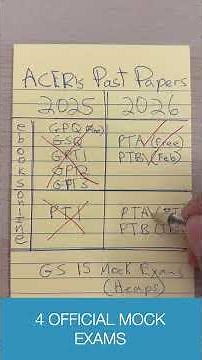 ACER's Past Papers
2025 2026
ebooks
GPQ (Free)
GSQ
GPT1
GPT2
GPT3
PTA (Free)
PTB (Feb)
online
PT1
PTA
PTB
GS 15 Mock Exams
(Hemps)
4 OFFICIAL MOCK
EXAMS